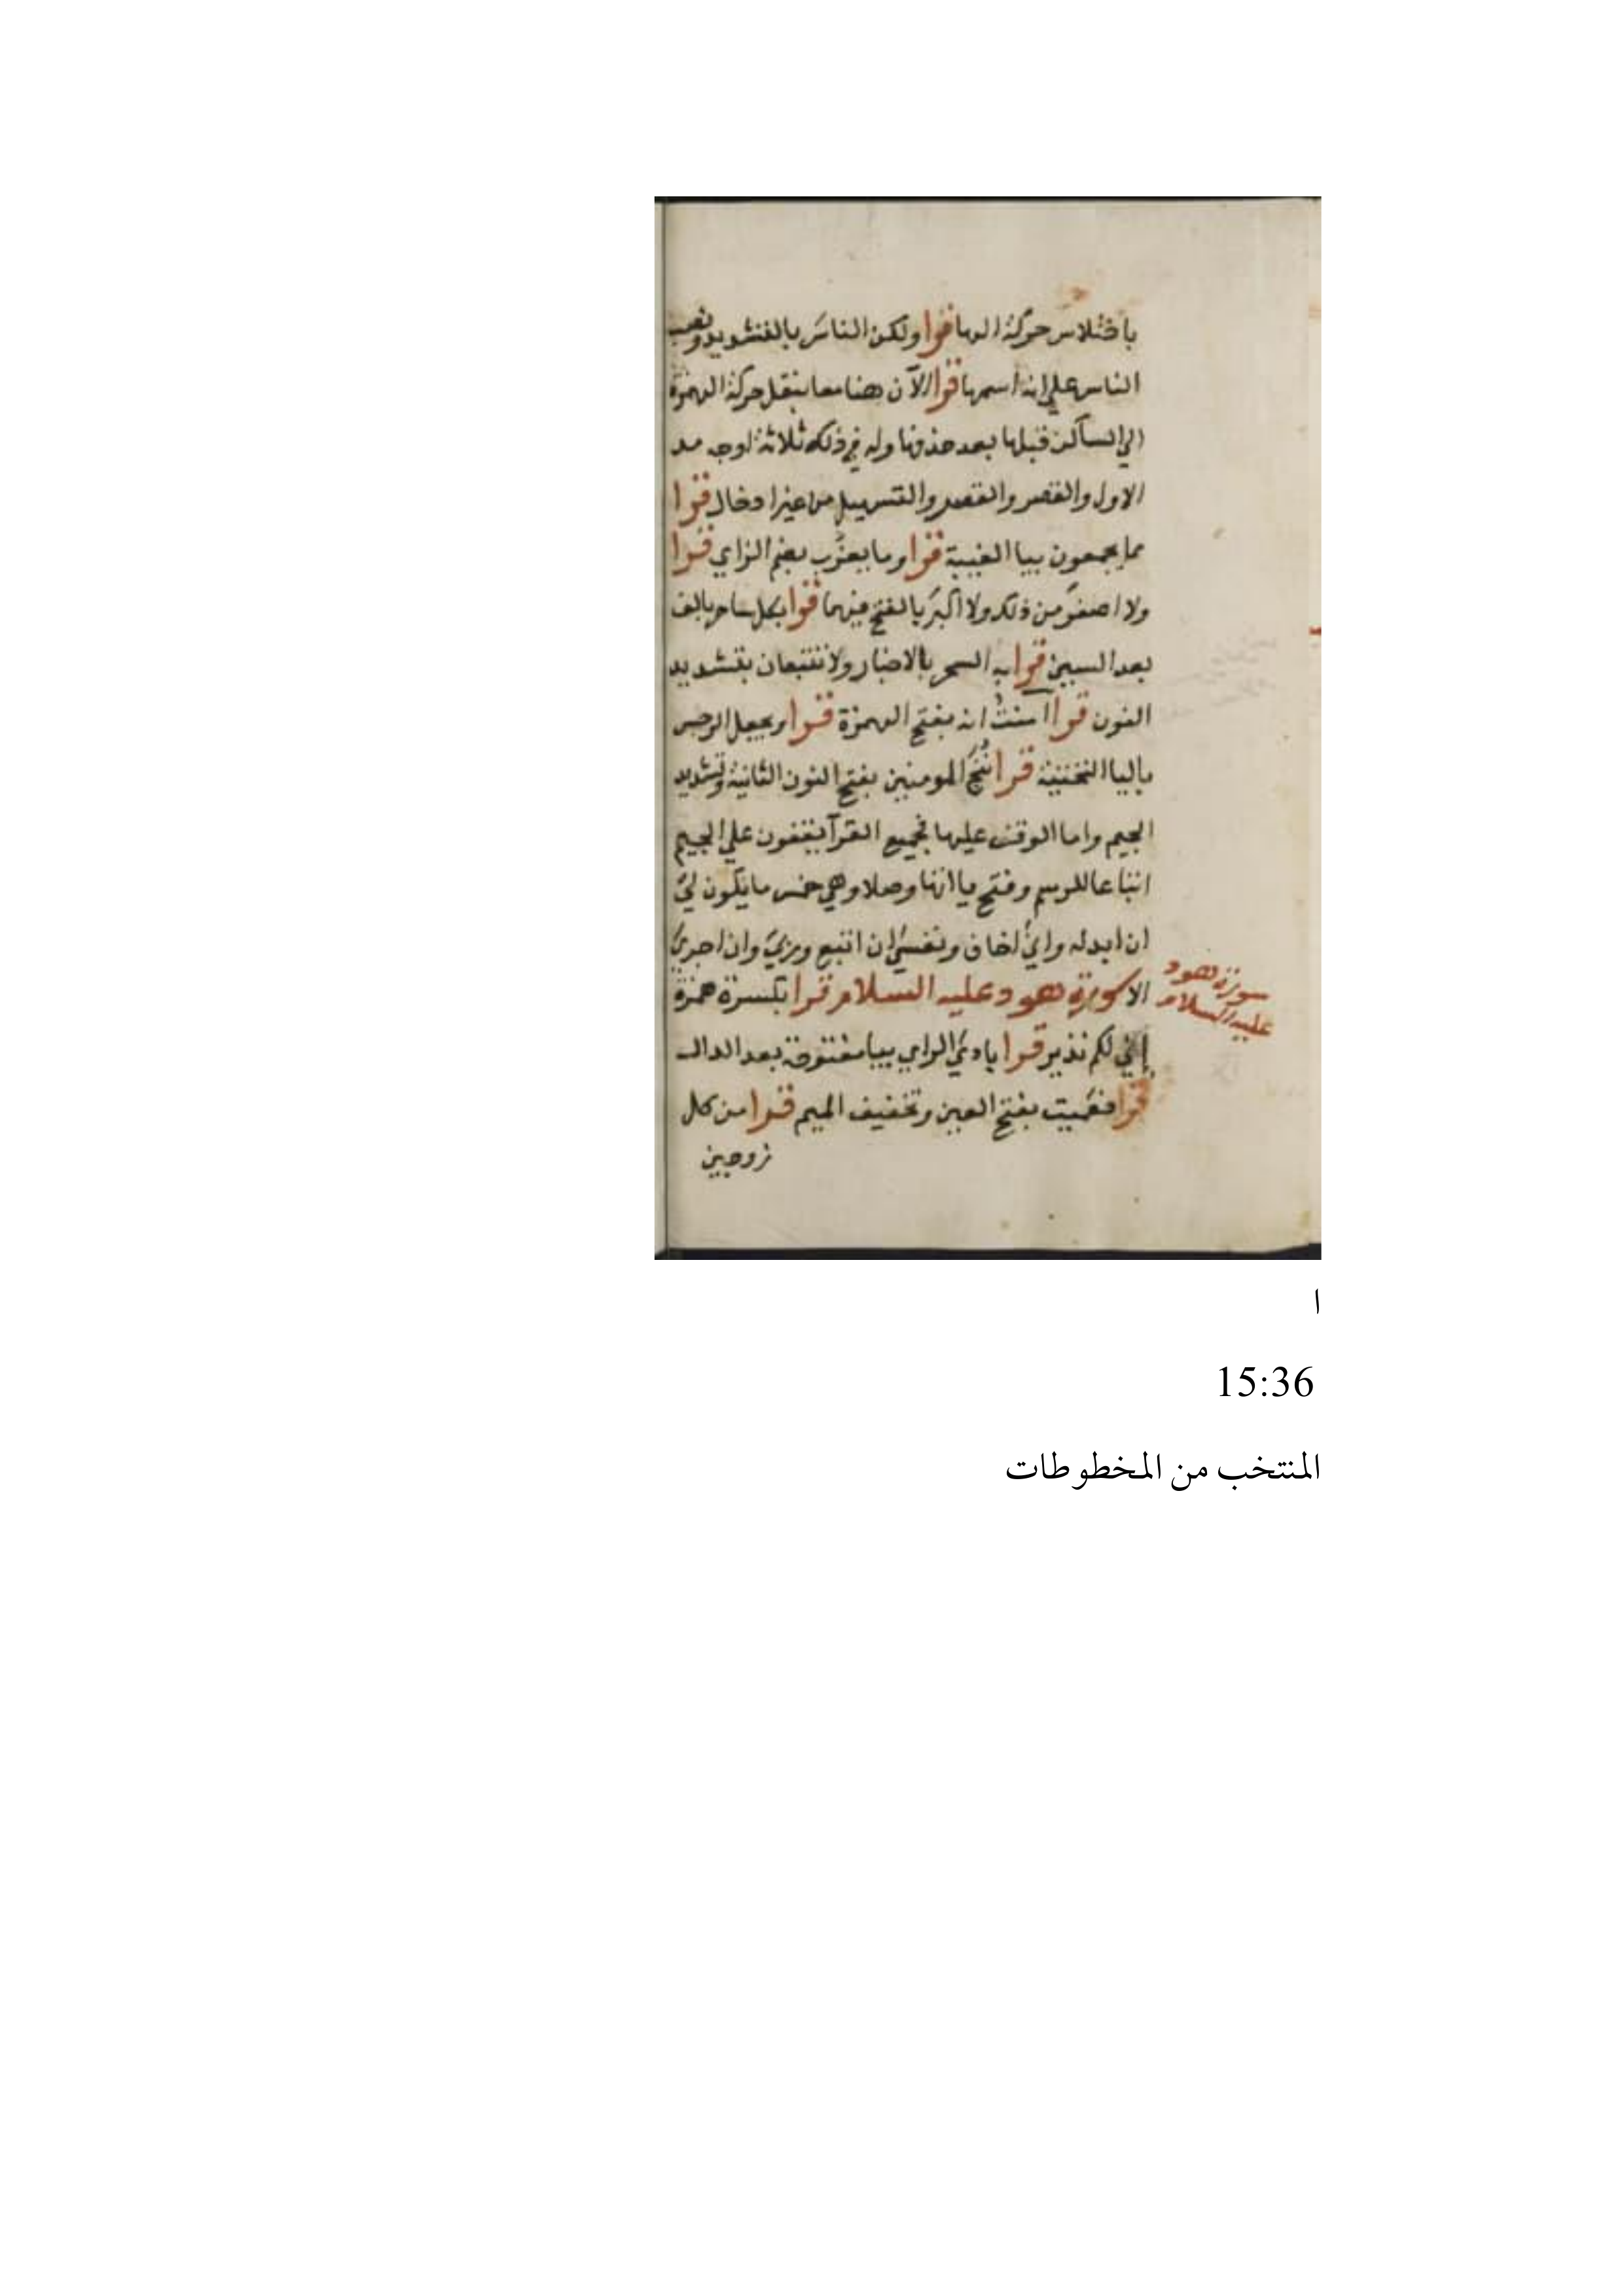 باختلاس حركة الها قرا ولكن الناسَ بالتشديد ونصب
الناس على انه اسمها قرا الآن هنا معا بنقل حركة الهمزة
الي الساكن قبلها بعد حذفها وله في ذلك ثلاثة اوجه مد
الاول والقصر والقصر والتسهيل من غير ادخال قرا
مما يجمعون بيا الغيبة قرا وما يعزُب بضم الزاي قرا
ولا اصغرَ من ذلك ولا اكبرَ بالفتح فيهما قرا بكل ساحر بالف
بعد السين قرا به السحر بالاخبار ولا تتبعان بتشديد
النون قرا آمنتُ انه بفتح الهمزة قرا ويجعل الرجس
باليا التحتية قرا نُنَجّ المومنين بفتح النون الثانية وتشديد
الجيم واما الوقف عليها فجميع القرآ يقفون علي الجيم
اتباعا للرسم وفتح يا انها وصلا وهي خمس ما يكون ليَ
ان ابدله وانيَ اخاف ونفسيَ ان اتبع وربيَ وان اجريَ
الا سورة هود عليه السلام قرا بكسرة همزة
إني لكم نذير قرا باديَ الراي بيا مفتوحة بعد الدال
قرا فعَمِيت بفتح العين وتخفيف الميم قرا من كل
زوجين
سورة هود
عليه السلام
ا
15:36
المنتخب من المخطوطات